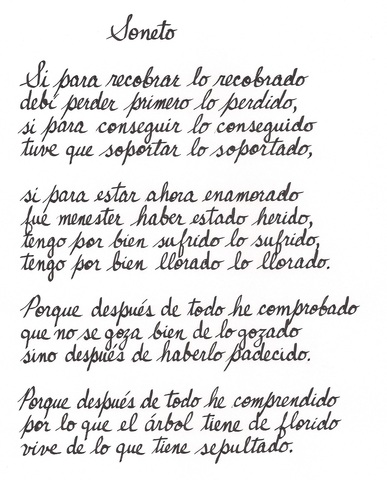 Soneto
Si para recobrar lo recobrado
debí perder primero lo perdido,
si para conseguir lo conseguido
tuve que soportar lo soportado,
si para estar ahora enamorado
fue menester haber estado herido,
tengo por bien sufrido lo sufrido,
tengo por bien llorado lo llorado.
Porque después de todo he comprobado
que no se goza bien de lo gozado
sino después de haberlo padecido.
Porque después de todo he comprendido
por lo que el árbol tiene de florido
vive de lo que tiene sepultado.